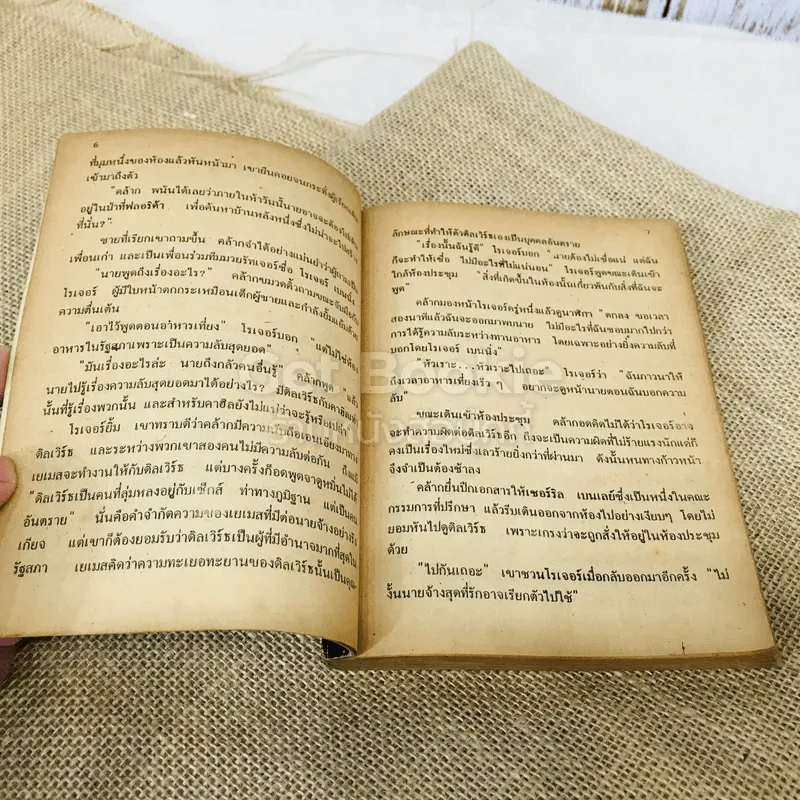 6
ที่มุมหนึ่งของห้องแล้วหันหน้ามา เขายืนคอยจนกระทั่งผู้เรียก
เข้ามาถึงตัว
"คล้าก พนันได้เลยว่าภายในห้าวันนั้นนายอาจจะต้องไป
อยู่ในป่าที่ฟลอริด้า เพื่อค้นหาบ้านหลังหนึ่งซึ่งไม่น่าจะไป
ที่นั่น?"
ชายที่เรียกเขาถามขึ้น คล้ากจำได้อย่างแม่นยำว่าผู้ถามเป็น
เพื่อนเก่า และเป็นเพื่อนร่วมทีมมวยรักเจอร์ชื่อ โรเจอร์ เบนนิ่ง
"นายพูดถึงเรื่องอะไร?" คล้ากขมวดคิ้วถามขณะจับมือกับ
โรเจอร์ ผู้มีใบหน้าตกกระเหมือนเด็กผู้ชายและกำลังยิ้มแย้มด้วย
ความตื่นเต้น
"เอาไว้พูดตอนอาหารเที่ยง" โรเจอร์บอก "แต่ไม่ใช่ห้อง
อาหารในรัฐสภาเพราะเป็นความลับสุดยอด"
"มันเรื่องอะไรล่ะ นายถึงกลัวคนอื่นรู้" คล้ากพูด "แล้ว
นายไปรู้เรื่องความลับสุดยอดมาได้อย่างไร? มีดิลเวิร์ธกับคาฮิลเท่า
นั้นที่รู้เรื่องพวกนั้น และสำหรับคาฮิลยังไม่แน่ว่าจะรู้หรือเปล่า"
โรเจอร์ยิ้ม เขาทราบดีว่าคล้ากมีความนับถือเอนเอียงมาทาง
ดิลเวิร์ธ และระหว่างพวกเขาสองคนไม่มีความลับต่อกัน ถึงแม้
เยเมสจะทำงานให้กับดิลเวิร์ธ แต่บางครั้งก็อดพูดจาดูหมิ่นไม่ได้
"ดิลเวิร์ธเป็นคนที่ลุ่มหลงอยู่กับเซ็กส์ ท่าทางภูมิฐาน แต่เป็นคน
อันตราย" นั่นคือคำจำกัดความของเยเมสที่มีต่อนายจ้างอย่างรัง
เกียจ แต่เขาก็ต้องยอมรับว่าดิลเวิร์ธเป็นผู้ที่มีอำนาจมากที่สุดใน
รัฐสภา เยเมสคิดว่าความทะเยอทะยานของดิลเวิร์ธนั้นเป็นคุณ-
7
ลักษณะที่ทำให้ตัวดิลเวิร์ธเองเป็นบุคคลอันตราย
"เรื่องนั้นฉันรู้ดี" โรเจอร์บอก "นายต้องไม่เชื่อแน่ แต่ฉัน
ก็จะทำให้เชื่อ ไม่มีอะไรที่ไม่แน่นอน" โรเจอร์พูดขณะเดินเข้า
ใกล้ห้องประชุม "สิ่งที่เกิดขึ้นในห้องนั้นเกี่ยวพันกับสิ่งที่ฉันจะ
พูด"
คล้ากมองหน้าโรเจอร์ครู่หนึ่งแล้วดูนาฬิกา "ตกลง ขอเวลา
สองนาทีแล้วฉันจะออกมาพบนาย ไม่มีอะไรที่ฉันชอบมากไปกว่า
การได้รู้ความลับระหว่างทานอาหาร โดยเฉพาะอย่างยิ่งความลับที่
บอกโดยโรเจอร์ เบนนิ่ง"
"หัวเราะ...หัวเราะไปเถอะ" โรเจอร์ว่า "ฉันภาวนาให้
ถึงเวลาอาหารเที่ยงเร็ว ๆ อยากจะดูหน้านายตอนฉันบอกความ
ลับ"
ขณะเดินเข้าห้องประชุม คล้ากอดคิดไม่ได้ว่าโรเจอร์อาจ
จะทำความผิดต่อดิลเวิร์ธอีก ถึงจะเป็นความผิดที่ไม่ร้ายแรงนักแต่ก็
คงเป็นเรื่องใหม่ซึ่งเลวร้ายยิ่งกว่าที่ผ่านมา ดังนั้นหนทางก้าวหน้า
จึงจำเป็นต้องช้าลง
คล้ากยื่นปึกเอกสารให้เชอร์ริล เบนเลย์ซึ่งเป็นหนึ่งในคณะ
กรรมการที่ปรึกษา แล้วรีบเดินออกจากห้องไปอย่างเงียบๆ โดยไม่
ยอมหันไปดูดิลเวิร์ธ เพราะเกรงว่าจะถูกสั่งให้อยู่ในห้องประชุม
ด้วย
"ไปกันเถอะ" เขาชวนโรเจอร์เมื่อกลับออกมาอีกครั้ง "ไม่
งั้นนายจ้างสุดที่รักอาจเรียกตัวไปใช้"
Get Bookie